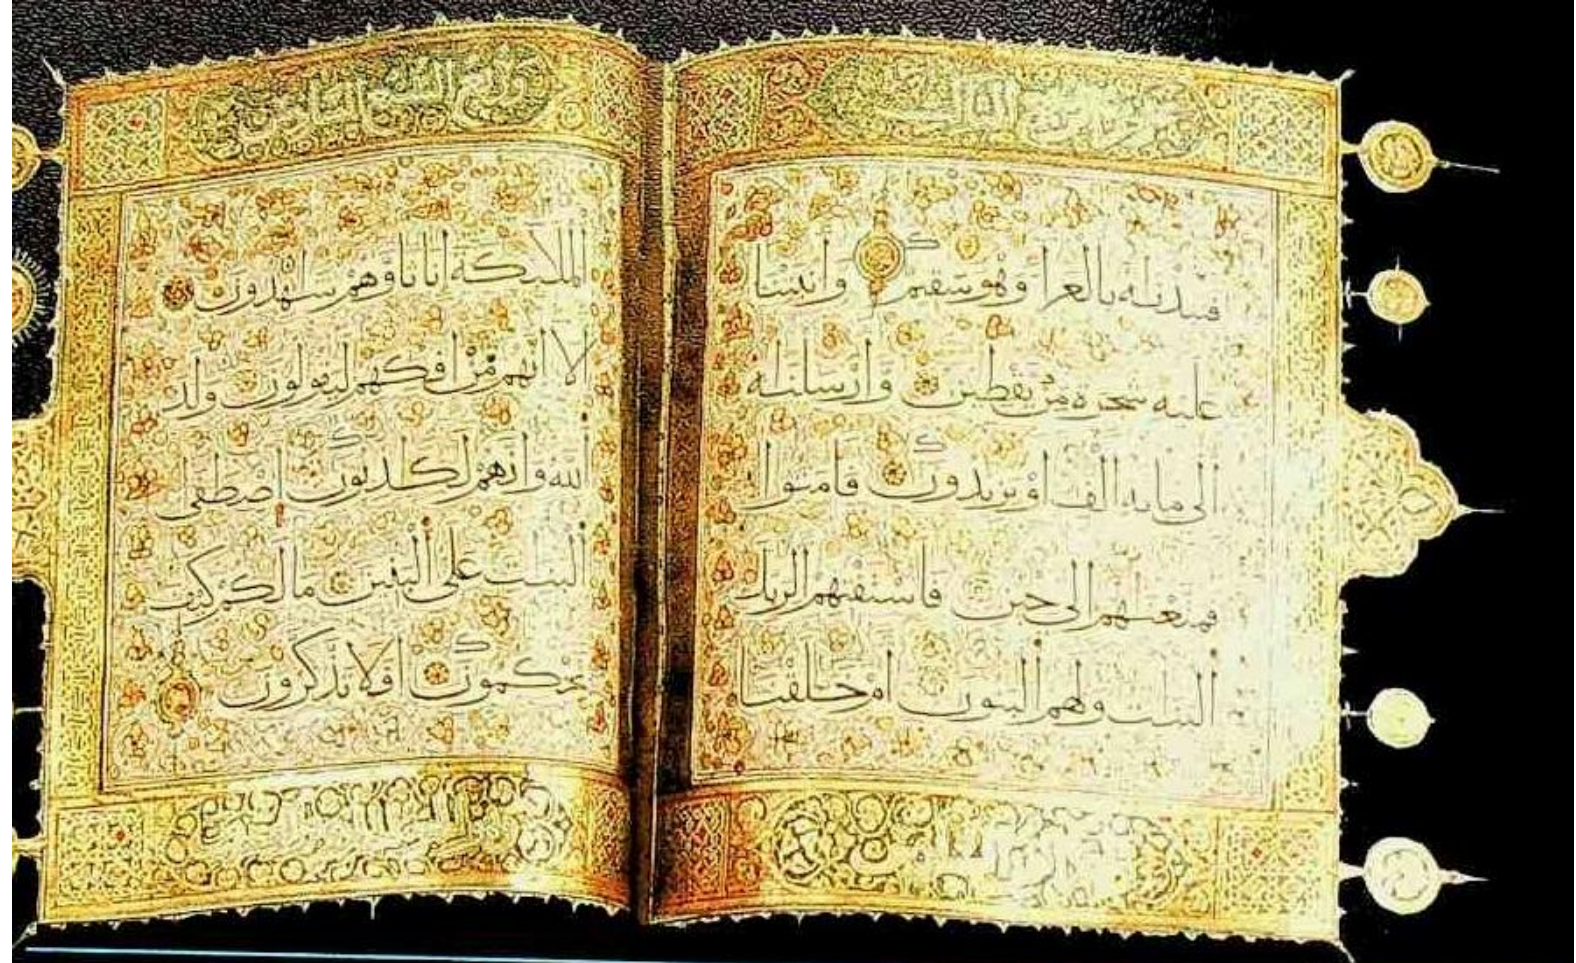 فنبذناه بالعرا وهو سقيم وانبتنا
عليه شجرة من يقطين وارسلناه
الى مايه الف او يزيدون فامنوا
فمتعناهم الى حين فاستفتهم الربك
البنات ولهم البنون ام خلقنا
الملائكة اناثا وهم شاهدون
الا انهم من افكهم ليقولون ولد
الله وانهم لكاذبون اصطفى
البنات على البنين مالكم كيف
تحكمون افلا تذكرون